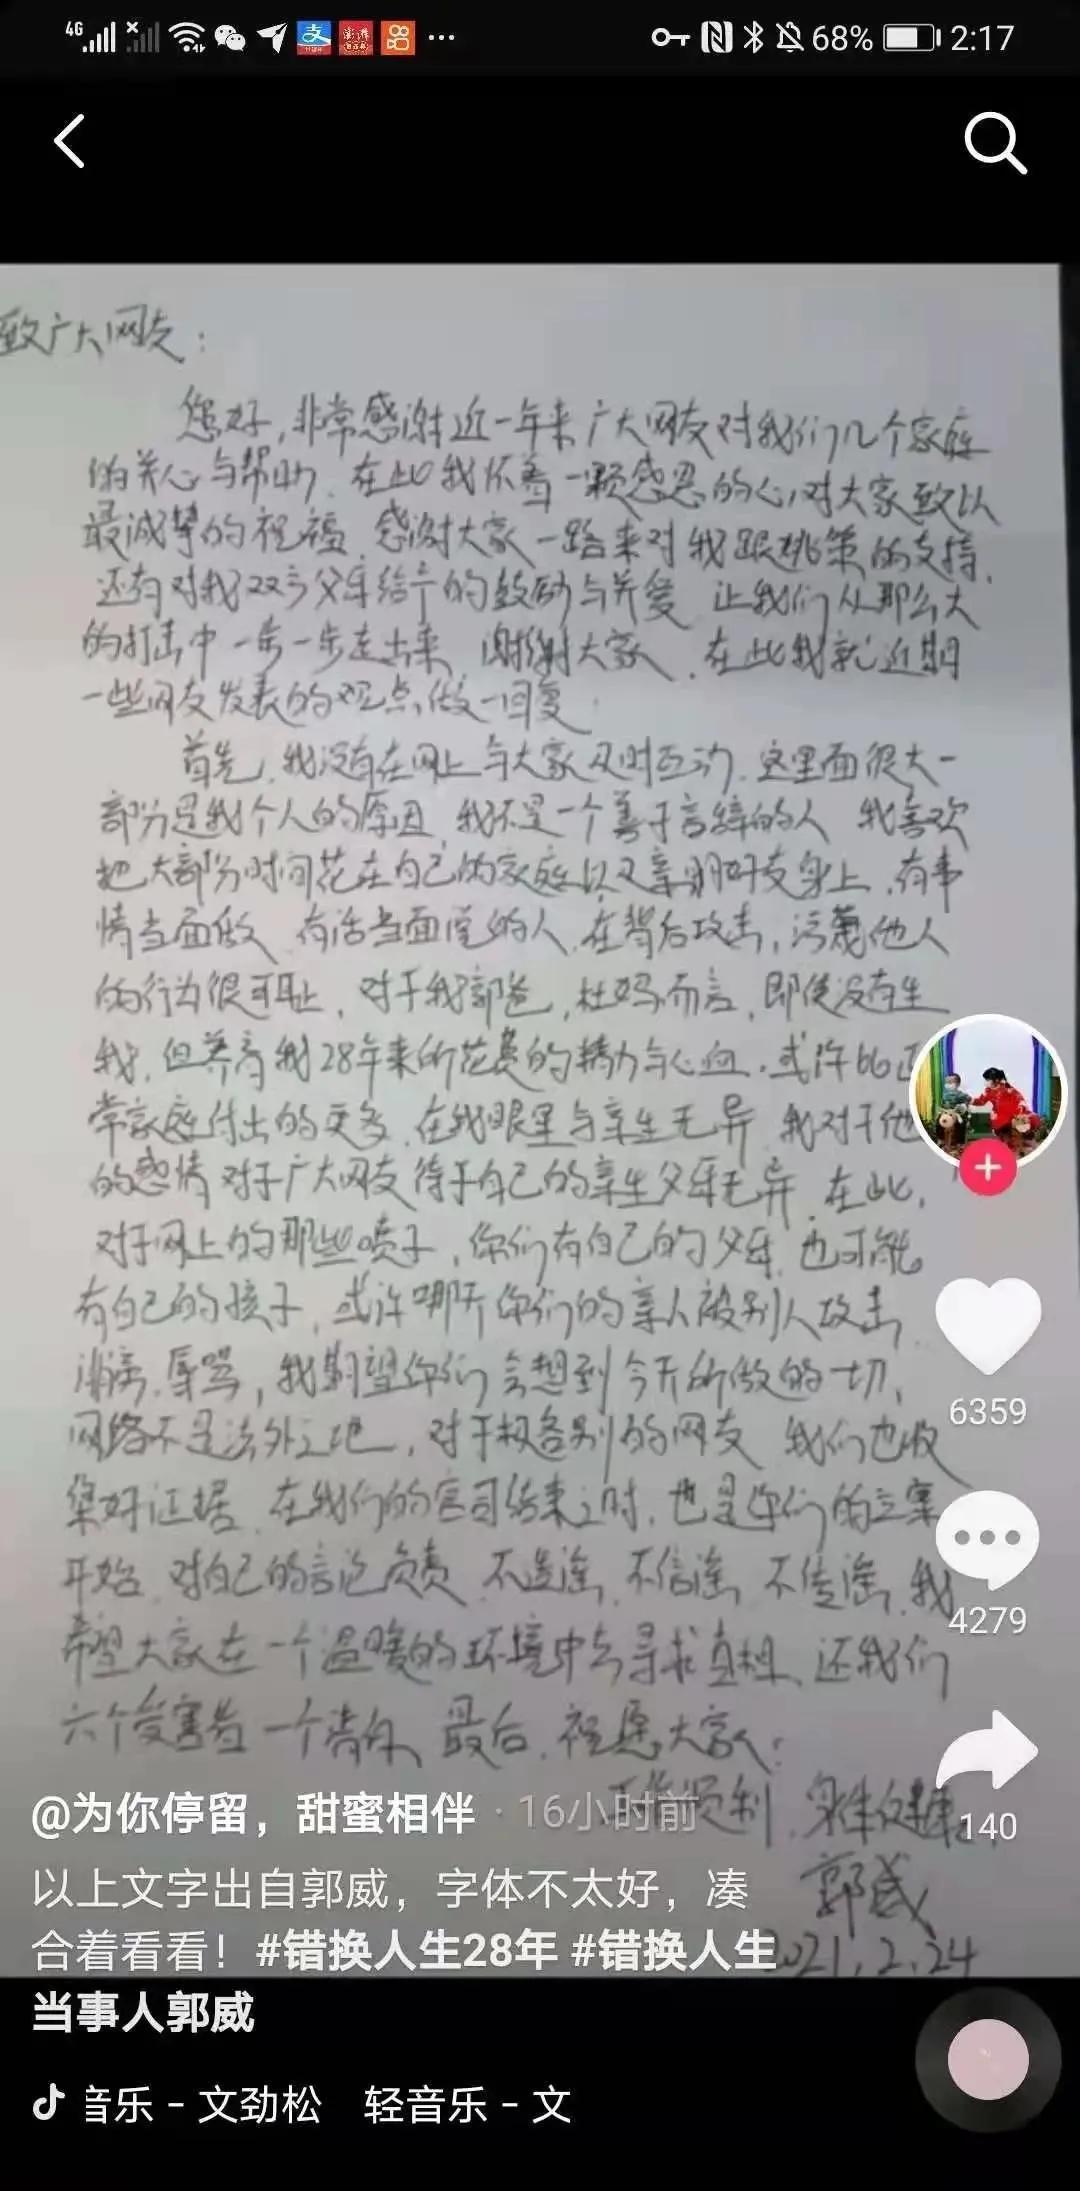 4G
68%
2:17
致广大网友：
您好，非常感谢近一年来广大网友对我们几个家庭
的关心与帮助，在此我怀着一颗感恩的心，对大家致以
最诚挚的祝福，感谢大家一路来对我跟姚策的支持，
还有对我双方父母给予的鼓励与关爱，让我们从那么大
的打击中一步一步走出来，谢谢大家，在此我就近期
一些网友发表的观点做一回复：
首先，我没有在网上与大家及时互动，这里面很大一
部分是我个人的原因，我不是一个善于言辞的人，我喜欢
把大部份时间花在自己的家庭以及亲朋好友身上，有事
情当面做，有话当面说的人，在背后攻击，污蔑他人
的行为很可耻，对于我郭爸，杜妈而言，即使没有生
我，但养育我28年来所花费的精力与心血，或许比正
常家庭付出的更多，在我眼里与亲生无异，我对于他
的感情对于广大网友待于自己的亲生父母无异，在此，
对于网上的那些喷子，你们有自己的父母，也可能
有自己的孩子，或许哪天你们的亲人被别人攻击，
辱骂，我期望你们会想到今天所做的一切，
网络不是法外之地，对于极各别的网友，我们也收
集好证据，在我们的官司结束之时，也是你们的立案
开始，对自己的言论负责，不造谣，不信谣，不传谣，我
希望大家在一个温暖的环境中去寻求真相，还我们
六个受害者一个清白，最后，祝愿大家：
工作顺利，身体健康
郭威
2021.2.24
6359
4279
140
@为你停留，甜蜜相伴 · 16小时前
以上文字出自郭威，字体不太好，凑
合着看看！#错换人生28年 #错换人生
当事人郭威
音乐 - 文劲松 轻音乐 - 文